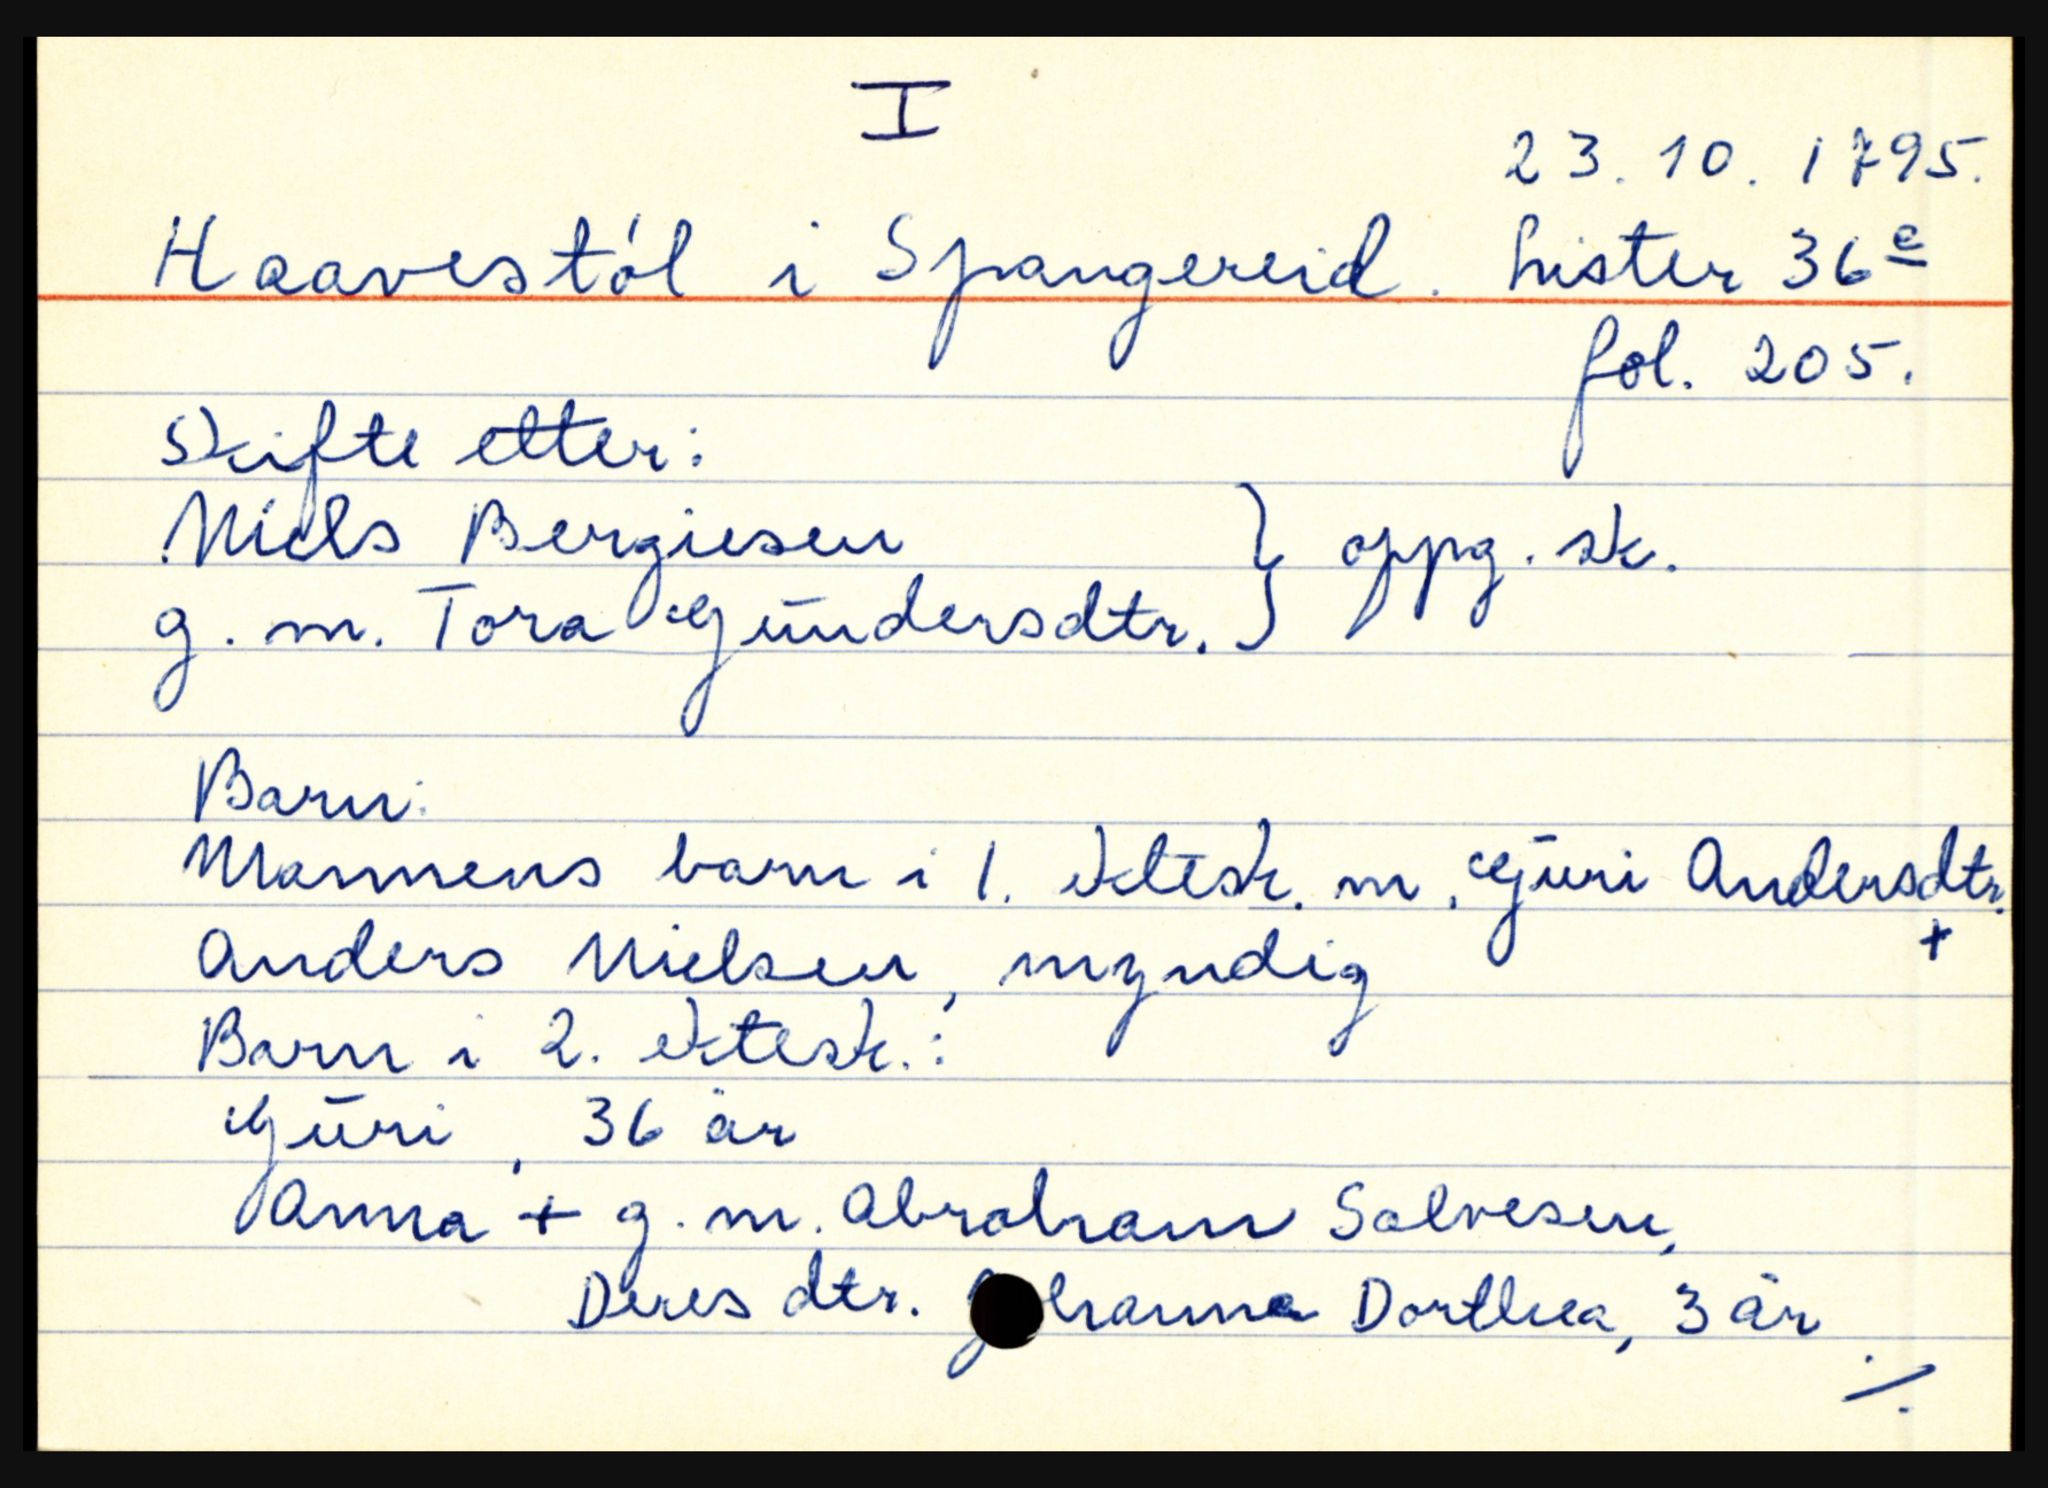 I
23.10.1795.
Haavestøl i Spangereid. Lister 36e
fol. 205.
Skifte etter:
Niels Bergiesen } oppg. sk.
g. m. Tora Gundersdtr.
Barn:
Mannens barn i 1. ektesk. m. Guri Andersdtr.
+
Anders Nielsen, myndig
Barn i 2. ektesk.:
Guri, 36 år
Anna + g. m. Abraham Salvesen,
Deres dtr. Johanna Dorthea, 3 år
./.